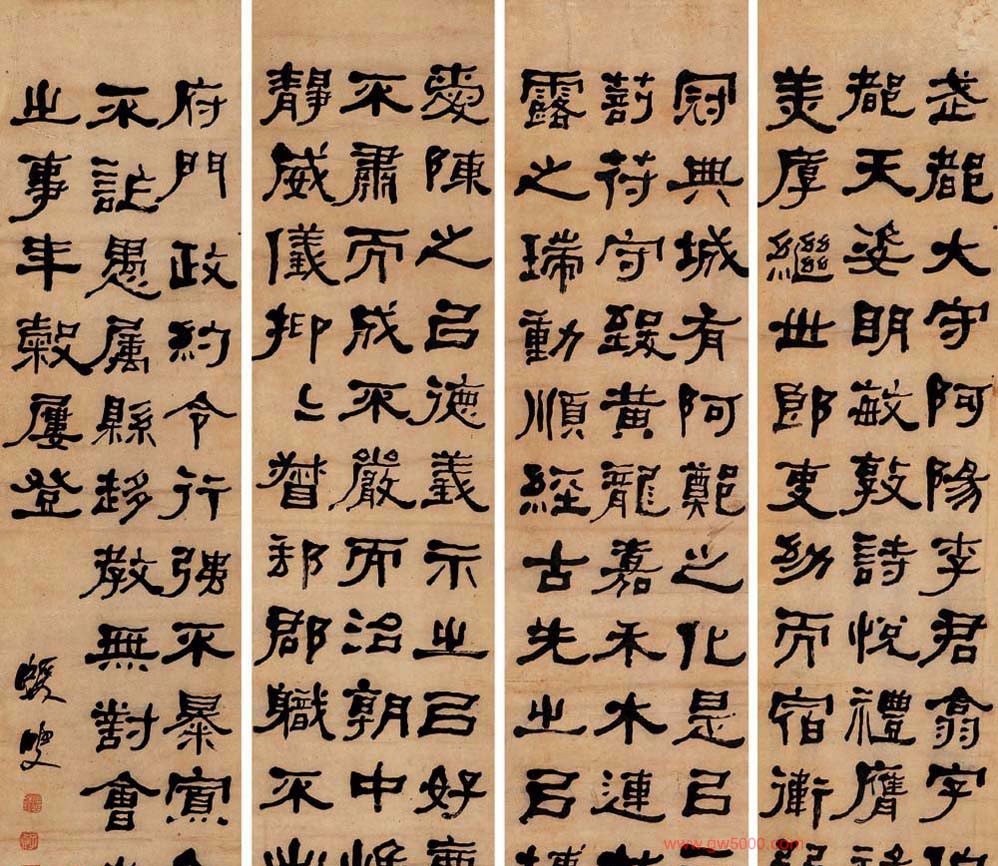 武都大守阿陽李君翕字
都天姿明敏敦詩悅禮膺
美厚繼世郎吏幼而宿衛
冠典城有阿鄭之化是㠯
莂苻守致黃龍嘉禾木連
露之瑞動順經古先之㠯
愛陳之㠯德義示之㠯好
不肅而成不嚴而治朝中
靜威儀抑〻督郵郡職不
府門政約令行強不暴寡
不詐愚屬縣趍教無對會
之事年穀屢登
蝯叟
www.gw5000.com